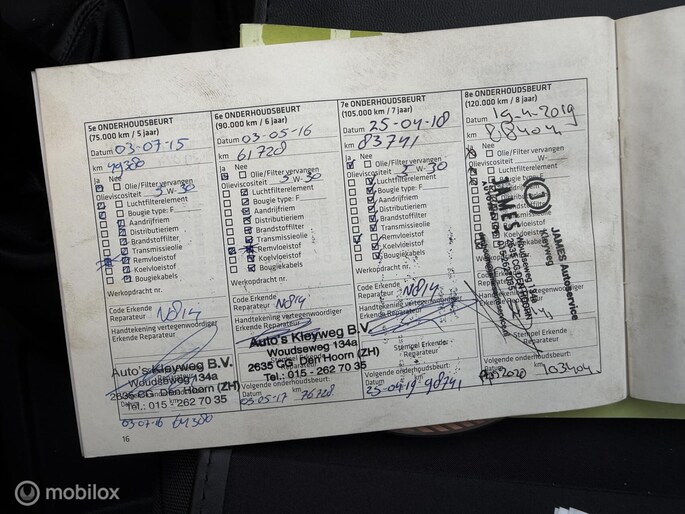 5e ONDERHOUDSBEURT
(75.000 km / 5 jaar)
Datum 03-07-15
km 49380
Ja Nee
Olie/Filter vervangen
Olieviscositeit 5 W-30
Luchtfilterelement
Bougie type: F
Aandrijfriem
Distributieriem
Brandstoffilter
Transmissieolie
Remvloeistof
Koelvloeistof
Bougiekabels
Werkopdracht nr.
Code Erkende
Reparateur N0814
Handtekening vertegenwoordiger
Erkende Reparateur
Auto's Kleyweg B.V.
Woudseweg 134a
2635 CG Den Hoorn (ZH)
Tel.: 015 - 262 70 35
03-07-16 64380
16
6e ONDERHOUDSBEURT
(90.000 km / 6 jaar)
Datum 03-05-16
km 61728
Ja Nee
Olie/Filter vervangen
Olieviscositeit 5 W-30
Luchtfilterelement
Bougie type: F
Aandrijfriem
Distributieriem
Brandstoffilter
Transmissieolie
Remvloeistof
Koelvloeistof
Bougiekabels
Werkopdracht nr.
Code Erkende
Reparateur N0814
Handtekening vertegenwoordiger
Erkende Reparateur
Auto's Kleyweg B.V.
Woudseweg 134a
2635 CG Den Hoorn (ZH)
Tel.: 015 - 262 70 35
Volgende onderhoudsbeurt:
Datum km
03-05-17 76728
7e ONDERHOUDSBEURT
(105.000 km / 7 jaar)
Datum 25-04-18
km 83741
Ja Nee
Olie/Filter vervangen
Olieviscositeit 5 W-30
Luchtfilterelement
Bougie type: F
Aandrijfriem
Distributieriem
Brandstoffilter
Transmissieolie
Remvloeistof
Koelvloeistof
Bougiekabels
Werkopdracht nr.
Code Erkende
Reparateur N0814
Handtekening vertegenwoordiger
Erkende Reparateur
Stempel Erkende
Reparateur
Volgende onderhoudsbeurt:
Datum km
25-04-19 98741
8e ONDERHOUDSBEURT
(120.000 km / 8 jaar)
Datum 19-4-2019
km 88404
Ja Nee
Olie/Filter vervangen
Olieviscositeit W-
Code Erkende
Reparateur
JAMES Autoservice
Kleyweg
Stempel Erkende
Reparateur
Volgende onderhoudsbeurt:
Datum km
2020 103404
mobilox